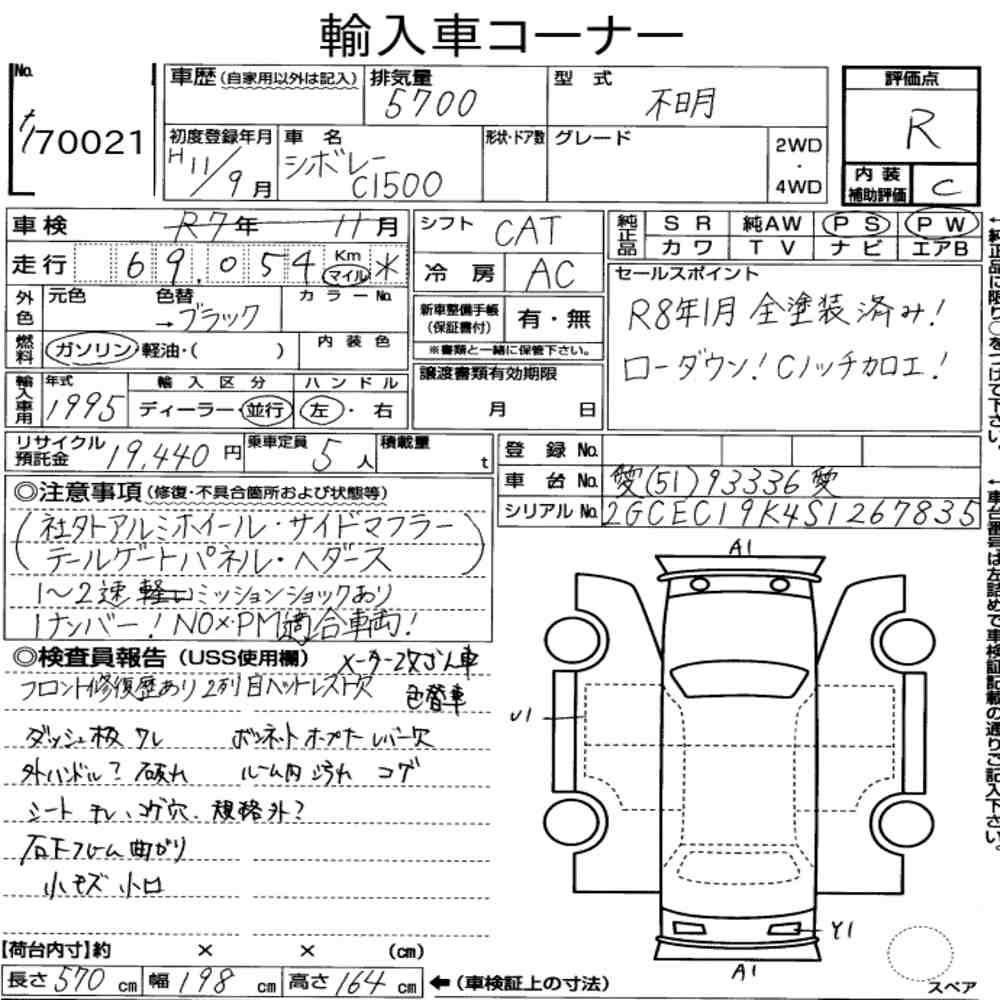 輸入車コーナー
No. 70021
車歴(自家用以外は記入) 排気量 5700 型式 不明
評価点 R
初度登録年月 H11/9月 車名 シボレー C1500 形状・ドア数 グレード 2WD・4WD
内装補助評価 C
車検 R7年 11月 シフト CAT 純正品 SR 純AW PS PW
カワ TV ナビ エアB
走行 69,054 Km マイル * 冷房 AC
セールスポイント
外色 元色 色替 →ブラック カラーNo. 新車整備手帳(保証書付) 有・無
R8年1月 全塗装済み!
燃料 ガソリン・軽油・( ) 内装色 ※書類と一緒に保管下さい。
ローダウン! Cノッチカロエ!
輸入車用 年式 1995 輸入区分 ディーラー・並行 ハンドル 左・右 譲渡書類有効期限 月 日
リサイクル預託金 19,440円 乗車定員 5人 積載量 t
登録No.
車台No. 愛(51)93336愛
シリアルNo. 2GCEC19K4S1267835
◎注意事項(修復・不具合箇所および状態等)
(社外アルミホイール・サイドマフラー
テールゲートパネル・ヘダース)
1〜2速軽いミッションショックあり
1ナンバー! NOx・PM適合車両!
◎検査員報告(USS使用欄) メーター改ざん車
フロント修復歴あり 2列目ヘッドレスト欠 色替車
ダッシュ板 ワレ ボンネットオープナーレバー欠
外ハンドル? 破れ ルーム内 汚れ コゲ
シート キレ、コゲ穴、規格外?
右下フレーム曲がり
小キズ 小凹
A1
U1
Y1
A1
スペア
【荷台内寸】約 × × (cm)
長さ 570cm 幅 198cm 高さ 164cm ←(車検証上の寸法)
↑純正品に限り○をつけて下さい。
↑車台番号は左詰めで車検証記載の通りご記入下さい。